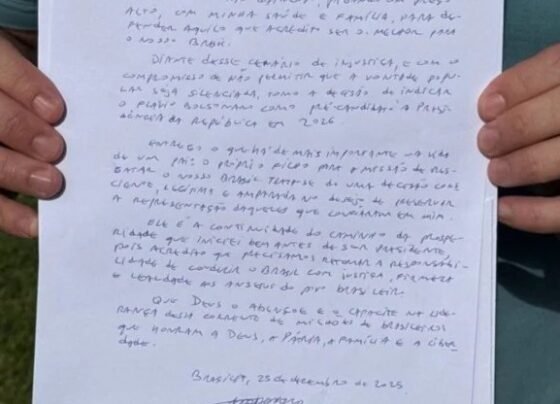 ALTO, COM MINHA SAÚDE E FAMÍLIA, PARA DE-
FENDER AQUILO QUE ACREDITO SER O MELHOR PARA
O NOSSO BRASIL.
DIANTE DESSE CENÁRIO DE INJUSTIÇA, E COM O
COMPROMISSO DE NÃO PERMITIR QUE A VONTADE POPU-
LAR SEJA SILENCIADA, TOMO A DECISÃO DE INDICAR
O FLÁVIO BOLSONARO COMO PRÉ-CANDIDATO À PRESI-
DÊNCIA DA REPÚBLICA EM 2026.
ENTREGO O QUE HÁ DE MAIS IMPORTANTE NA VIDA
DE UM PAI: O PRÓPRIO FILHO PARA A MISSÃO DE RES-
GATAR O NOSSO BRASIL. TRATA-SE DE UMA DECISÃO CONS-
CIENTE, LEGÍTIMA E AMPARADA NO DESEJO DE PRESERVAR
A REPRESENTAÇÃO DAQUELES QUE CONFIARAM EM MIM.
ELE É A CONTINUIDADE DO CAMINHO DA PROSPE-
RIDADE QUE INICIEI BEM ANTES DE SER PRESIDENTE,
POIS ACREDITO QUE PRECISAMOS RETOMAR A RESPONSABI-
LIDADE DE CONDUZIR O BRASIL COM JUSTIÇA, FIRMEZA
E LEALDADE AOS ANSEIOS DO POVO BRASILEIRO.
QUE DEUS O ABENÇOE E O CAPACITE NA LIDE-
RANÇA DESSA CORRENTE DE MILHÕES DE BRASILEIROS
QUE HONRAM A DEUS, A PÁTRIA, A FAMÍLIA E A LIBER-
DADE.
BRASÍLIA, 25 de dezembro de 2025.